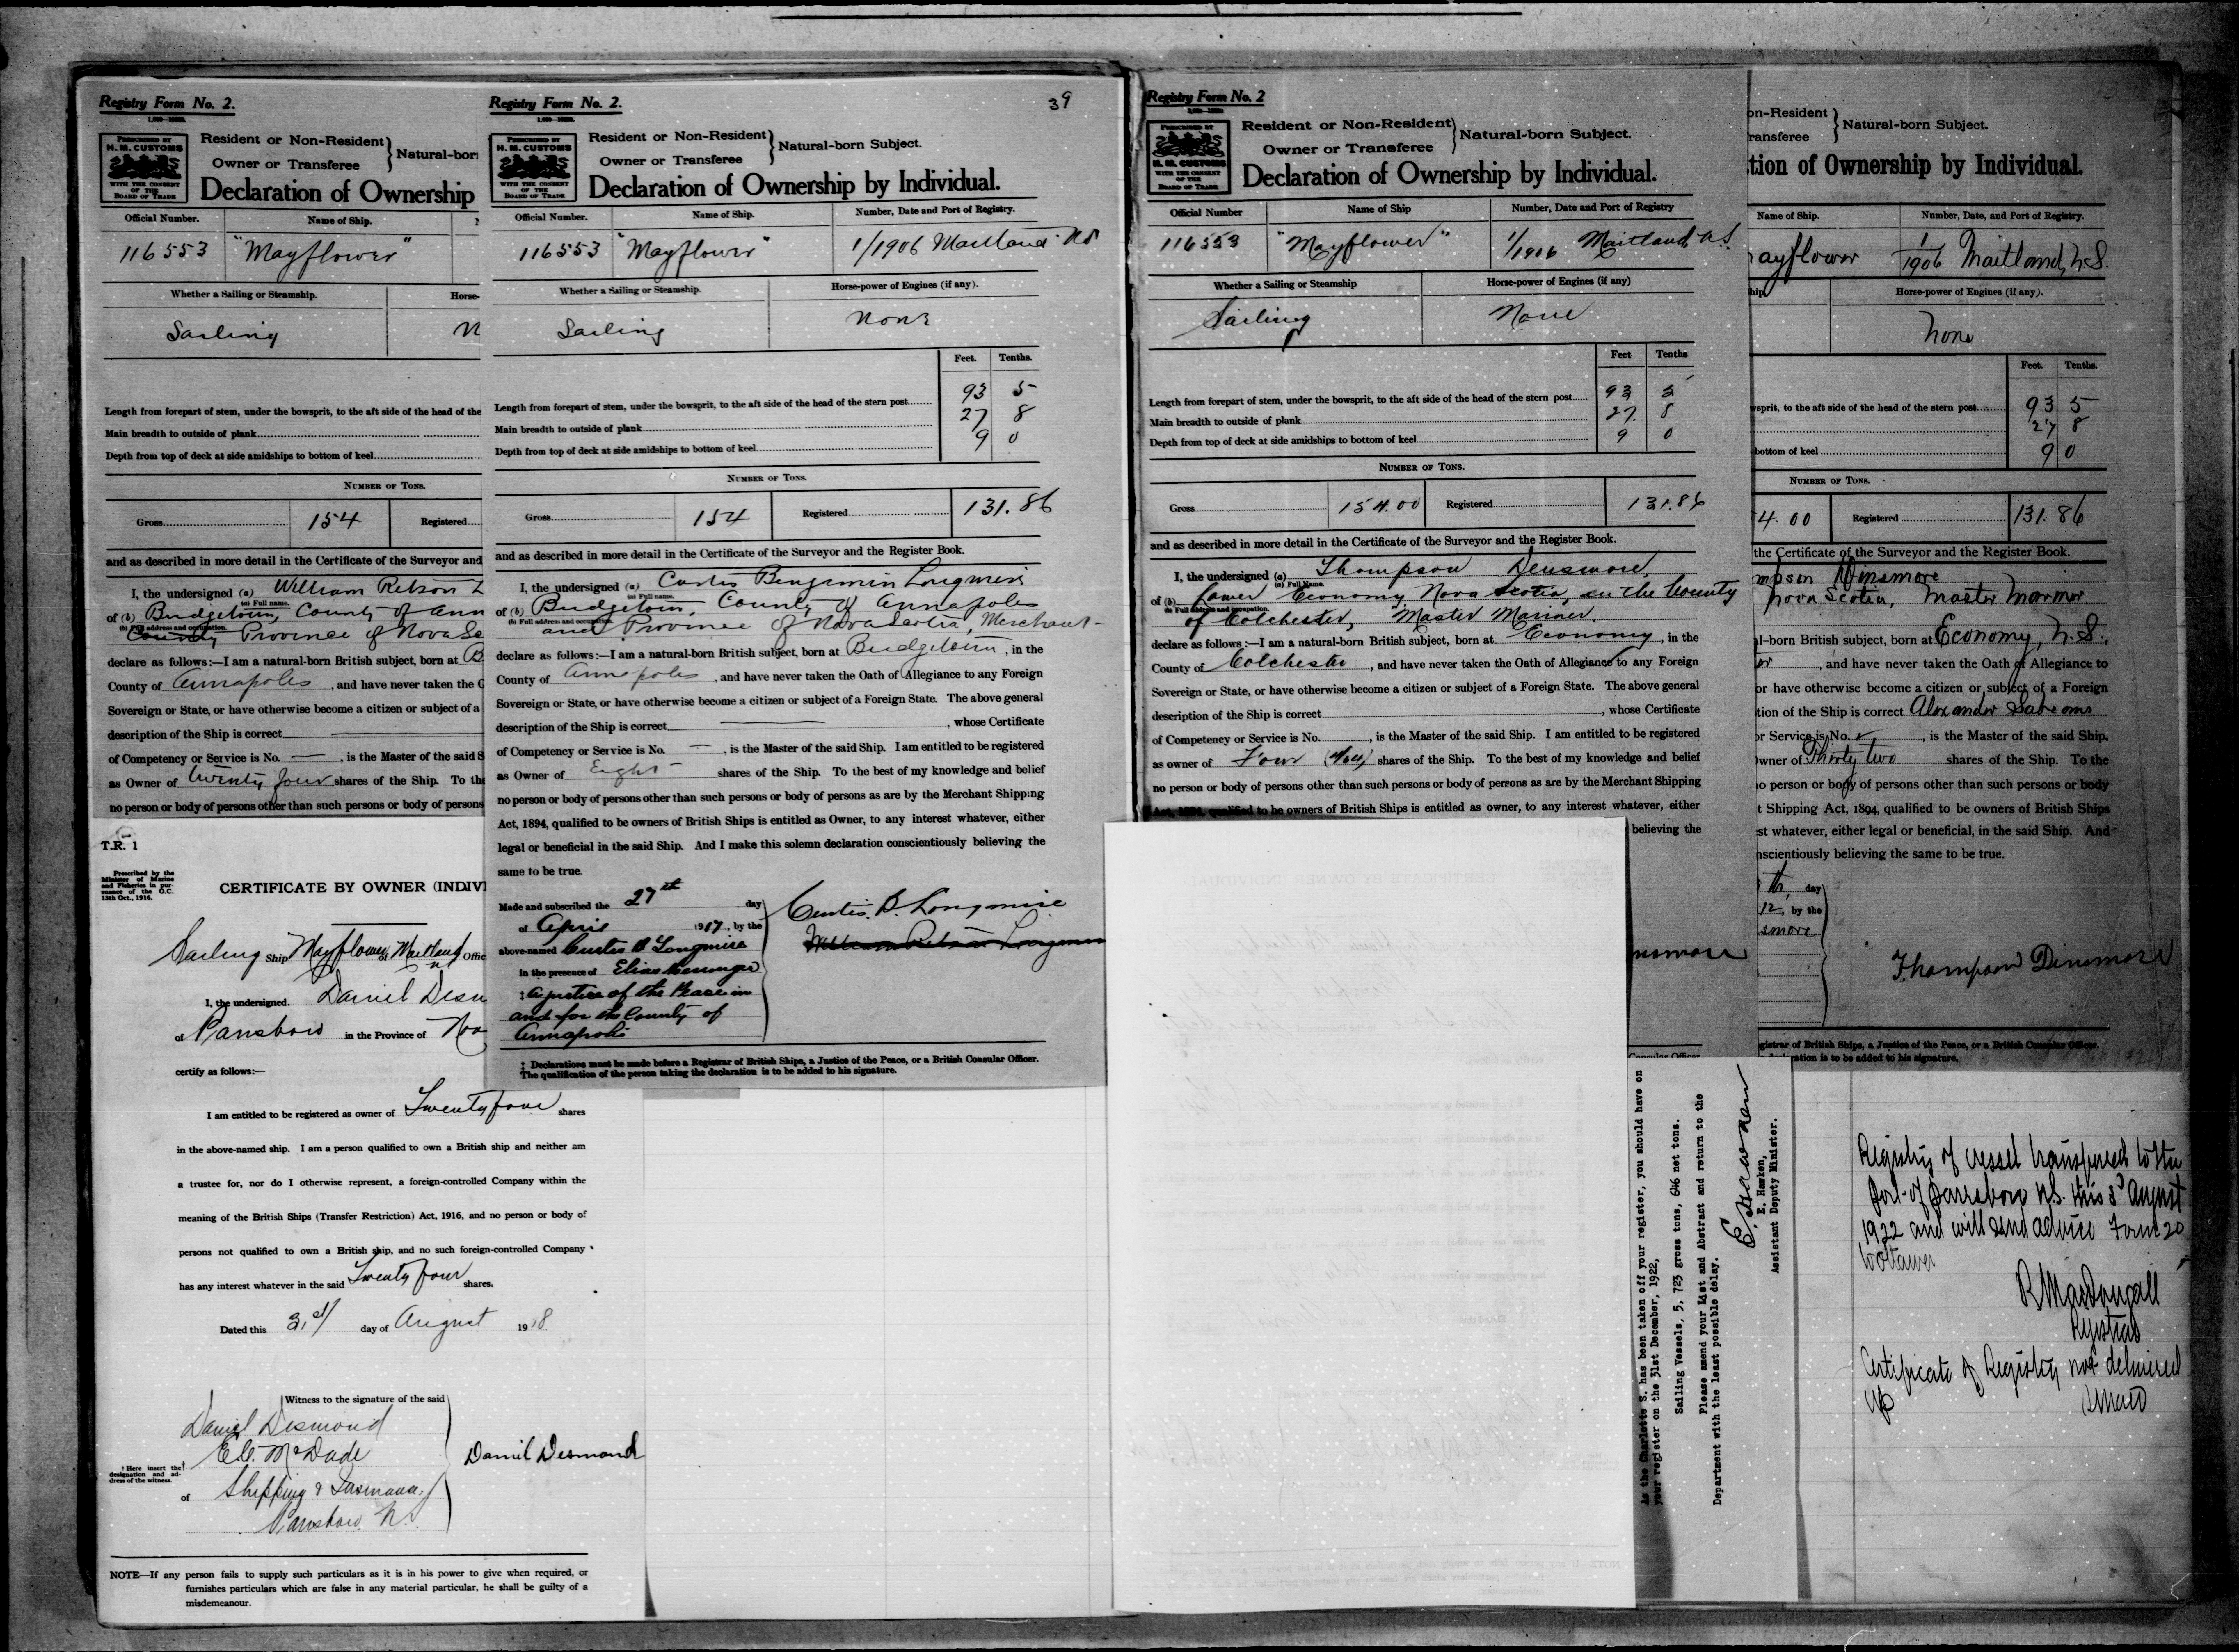 Registry Form No. 2.
PRESCRIBED BY
H. M. CUSTOMS
WITH THE CONSENT
OF THE
BOARD OF TRADE
Resident or Non-Resident
Owner or Transferee
Natural-born
Declaration of Ownership
Official Number.
Name of Ship.
116553 "Mayflower"
Whether a Sailing or Steamship.
Horse-
Sailing
N
Length from forepart of stem, under the bowsprit, to the aft side of the head of the
Main breadth to outside of plank
Depth from top of deck at side amidships to bottom of keel
NUMBER OF TONS.
Gross 154 Registered
and as described in more detail in the Certificate of the Surveyor and
I, the undersigned (a) William Retson L
(a) Full name.
of (b) Bridgetown, County of Ann
(b) Full address and occupation.
County Province of Nova Sc
declare as follows:—I am a natural-born British subject, born at B
County of Annapolis, and have never taken the O
Sovereign or State, or have otherwise become a citizen or subject of a
description of the Ship is correct
of Competency or Service is No. — , is the Master of the said S
as Owner of twenty four shares of the Ship. To the
no person or body of persons other than such persons or body of persons
T.R. 1
Prescribed by the
Minister of Marine
and Fisheries in pur-
suance of the O.C.
13th Oct., 1916.
CERTIFICATE BY OWNER (INDIVI
Sailing Ship Mayflower of Maitland Offic
I, the undersigned. Daniel Desm
of Parrsboro in the Province of Nov
certify as follows:—
I am entitled to be registered as owner of Twenty four shares
in the above-named ship. I am a person qualified to own a British ship and neither am
a trustee for, nor do I otherwise represent, a foreign-controlled Company within the
meaning of the British Ships (Transfer Restriction) Act, 1916, and no person or body of
persons not qualified to own a British ship, and no such foreign-controlled Company
has any interest whatever in the said Twenty four shares.
Dated this 3rd day of August 1918
Witness to the signature of the said
Daniel Desmond
McDade
Daniel Desmond
† Here insert the
designation and ad-
dress of the witness.
of Shipping &
Parrsboro N.S.
NOTE—If any person fails to supply such particulars as it is in his power to give when required, or
furnishes particulars which are false in any material particular, he shall be guilty of a
misdemeanour.
39
Registry Form No. 2.
PRESCRIBED BY
H. M. CUSTOMS
WITH THE CONSENT
OF THE
BOARD OF TRADE
Resident or Non-Resident
Owner or Transferee
Natural-born Subject.
Declaration of Ownership by Individual.
Official Number.
Name of Ship.
Number, Date and Port of Registry.
116553 "Mayflower" 1/1906 Maitland NS
Whether a Sailing or Steamship.
Horse-power of Engines (if any).
Sailing
None
Feet. Tenths.
Length from forepart of stem, under the bowsprit, to the aft side of the head of the stern post 93 5
Main breadth to outside of plank 27 8
Depth from top of deck at side amidships to bottom of keel 9 0
NUMBER OF TONS.
Gross 154 Registered 131.86
and as described in more detail in the Certificate of the Surveyor and the Register Book.
I, the undersigned (a) Curtis Benjamin Longmire
(a) Full name.
of (b) Bridgetown, County of Annapolis
(b) Full address and occupation.
and Province of Nova Scotia, Merchant-
declare as follows:—I am a natural-born British subject, born at Bridgetown, in the
County of Annapolis, and have never taken the Oath of Allegiance to any Foreign
Sovereign or State, or have otherwise become a citizen or subject of a Foreign State. The above general
description of the Ship is correct , whose Certificate
of Competency or Service is No. — , is the Master of the said Ship. I am entitled to be registered
as Owner of Eight shares of the Ship. To the best of my knowledge and belief
no person or body of persons other than such persons or body of persons as are by the Merchant Shipping
Act, 1894, qualified to be owners of British Ships is entitled as Owner, to any interest whatever, either
legal or beneficial in the said Ship. And I make this solemn declaration conscientiously believing the
same to be true.
Made and subscribed the 27th day
of April 1917, by the
above-named Curtis B Longmire
in the presence of Elias Messinger
‡ a justice of the Peace in
and for the County of
Annapolis
Curtis. B. Longmire
William Retson Longmire
‡ Declarations must be made before a Registrar of British Ships, a Justice of the Peace, or a British Consular Officer.
The qualification of the person taking the declaration is to be added to his signature.
Registry Form No. 2
PRESCRIBED BY
H. M. CUSTOMS
WITH THE CONSENT
OF THE
BOARD OF TRADE
Resident or Non-Resident
Owner or Transferee
Natural-born Subject.
Declaration of Ownership by Individual.
Official Number
Name of Ship
Number, Date and Port of Registry
116553 "Mayflower" 1/1906 Maitland, N.S.
Whether a Sailing or Steamship
Horse-power of Engines (if any)
Sailing
None
Feet Tenths
Length from forepart of stem, under the bowsprit, to the aft side of the head of the stern post 93 5
Main breadth to outside of plank 27. 8
Depth from top of deck at side amidships to bottom of keel 9 0
NUMBER OF TONS.
Gross 154.00 Registered 131.86
and as described in more detail in the Certificate of the Surveyor and the Register Book.
I, the undersigned (a) Thompson Densmore,
(a) Full Name.
of (b) Lower Economy Nova Scotia, in the County
(b) Full address and occupation.
of Colchester, "Master Mariner.
declare as follows:—I am a natural-born British subject, born at Economy, in the
County of Colchester, and have never taken the Oath of Allegiance to any Foreign
Sovereign or State, or have otherwise become a citizen or subject of a Foreign State. The above general
description of the Ship is correct , whose Certificate
of Competency or Service is No. , is the Master of the said Ship. I am entitled to be registered
as owner of Four (4) shares of the Ship. To the best of my knowledge and belief
no person or body of persons other than such persons or body of persons as are by the Merchant Shipping
Act, 1894, qualified to be owners of British Ships is entitled as owner, to any interest whatever, either
believing the
nsmore
Consular Officer
As the Charlotte S. has been taken off your register, you should have on
your register on the 31st December, 1922,
Sailing Vessels, 5, 723 gross tons, 646 net tons.
Please amend your List and Abstract and return to the
Department with the least possible delay.
E. Hawken
E. Hawken,
Assistant Deputy Minister.
on-Resident
ransferee
Natural-born Subject.
tion of Ownership by Individual.
Name of Ship.
Number, Date, and Port of Registry.
ayflower 1/1906 Maitland, N.S.
hip
Horse-power of Engines (if any).
None
Feet. Tenths.
wsprit, to the aft side of the head of the stern post 93 5
27 8
bottom of keel 9 0
NUMBER OF TONS.
4.00 Registered 131.86
the Certificate of the Surveyor and the Register Book.
mpson Dinsmore
Nova Scotia, Master Mariner
al-born British subject, born at Economy, N.S.,
er , and have never taken the Oath of Allegiance to
or have otherwise become a citizen or subject of a Foreign
tion of the Ship is correct Alexander
or Service is No. , is the Master of the said Ship.
owner of Thirty two shares of the Ship. To the
no person or body of persons other than such persons or body
t Shipping Act, 1894, qualified to be owners of British Ships
st whatever, either legal or beneficial, in the said Ship. And
nscientiously believing the same to be true.
th, day
12, by the
smore
Thompson Dinsmore
gistrar of British Ships, a Justice of the Peace, or a British Consular Officer.
ration is to be added to his signature.
Registry of vessel transferred to the
Port of Parrsboro N.S. this 3d August
1922 and will send advice Form 20
to Ottawa
R MacDougall
Registrar
Certificate of Registry not delivered
up